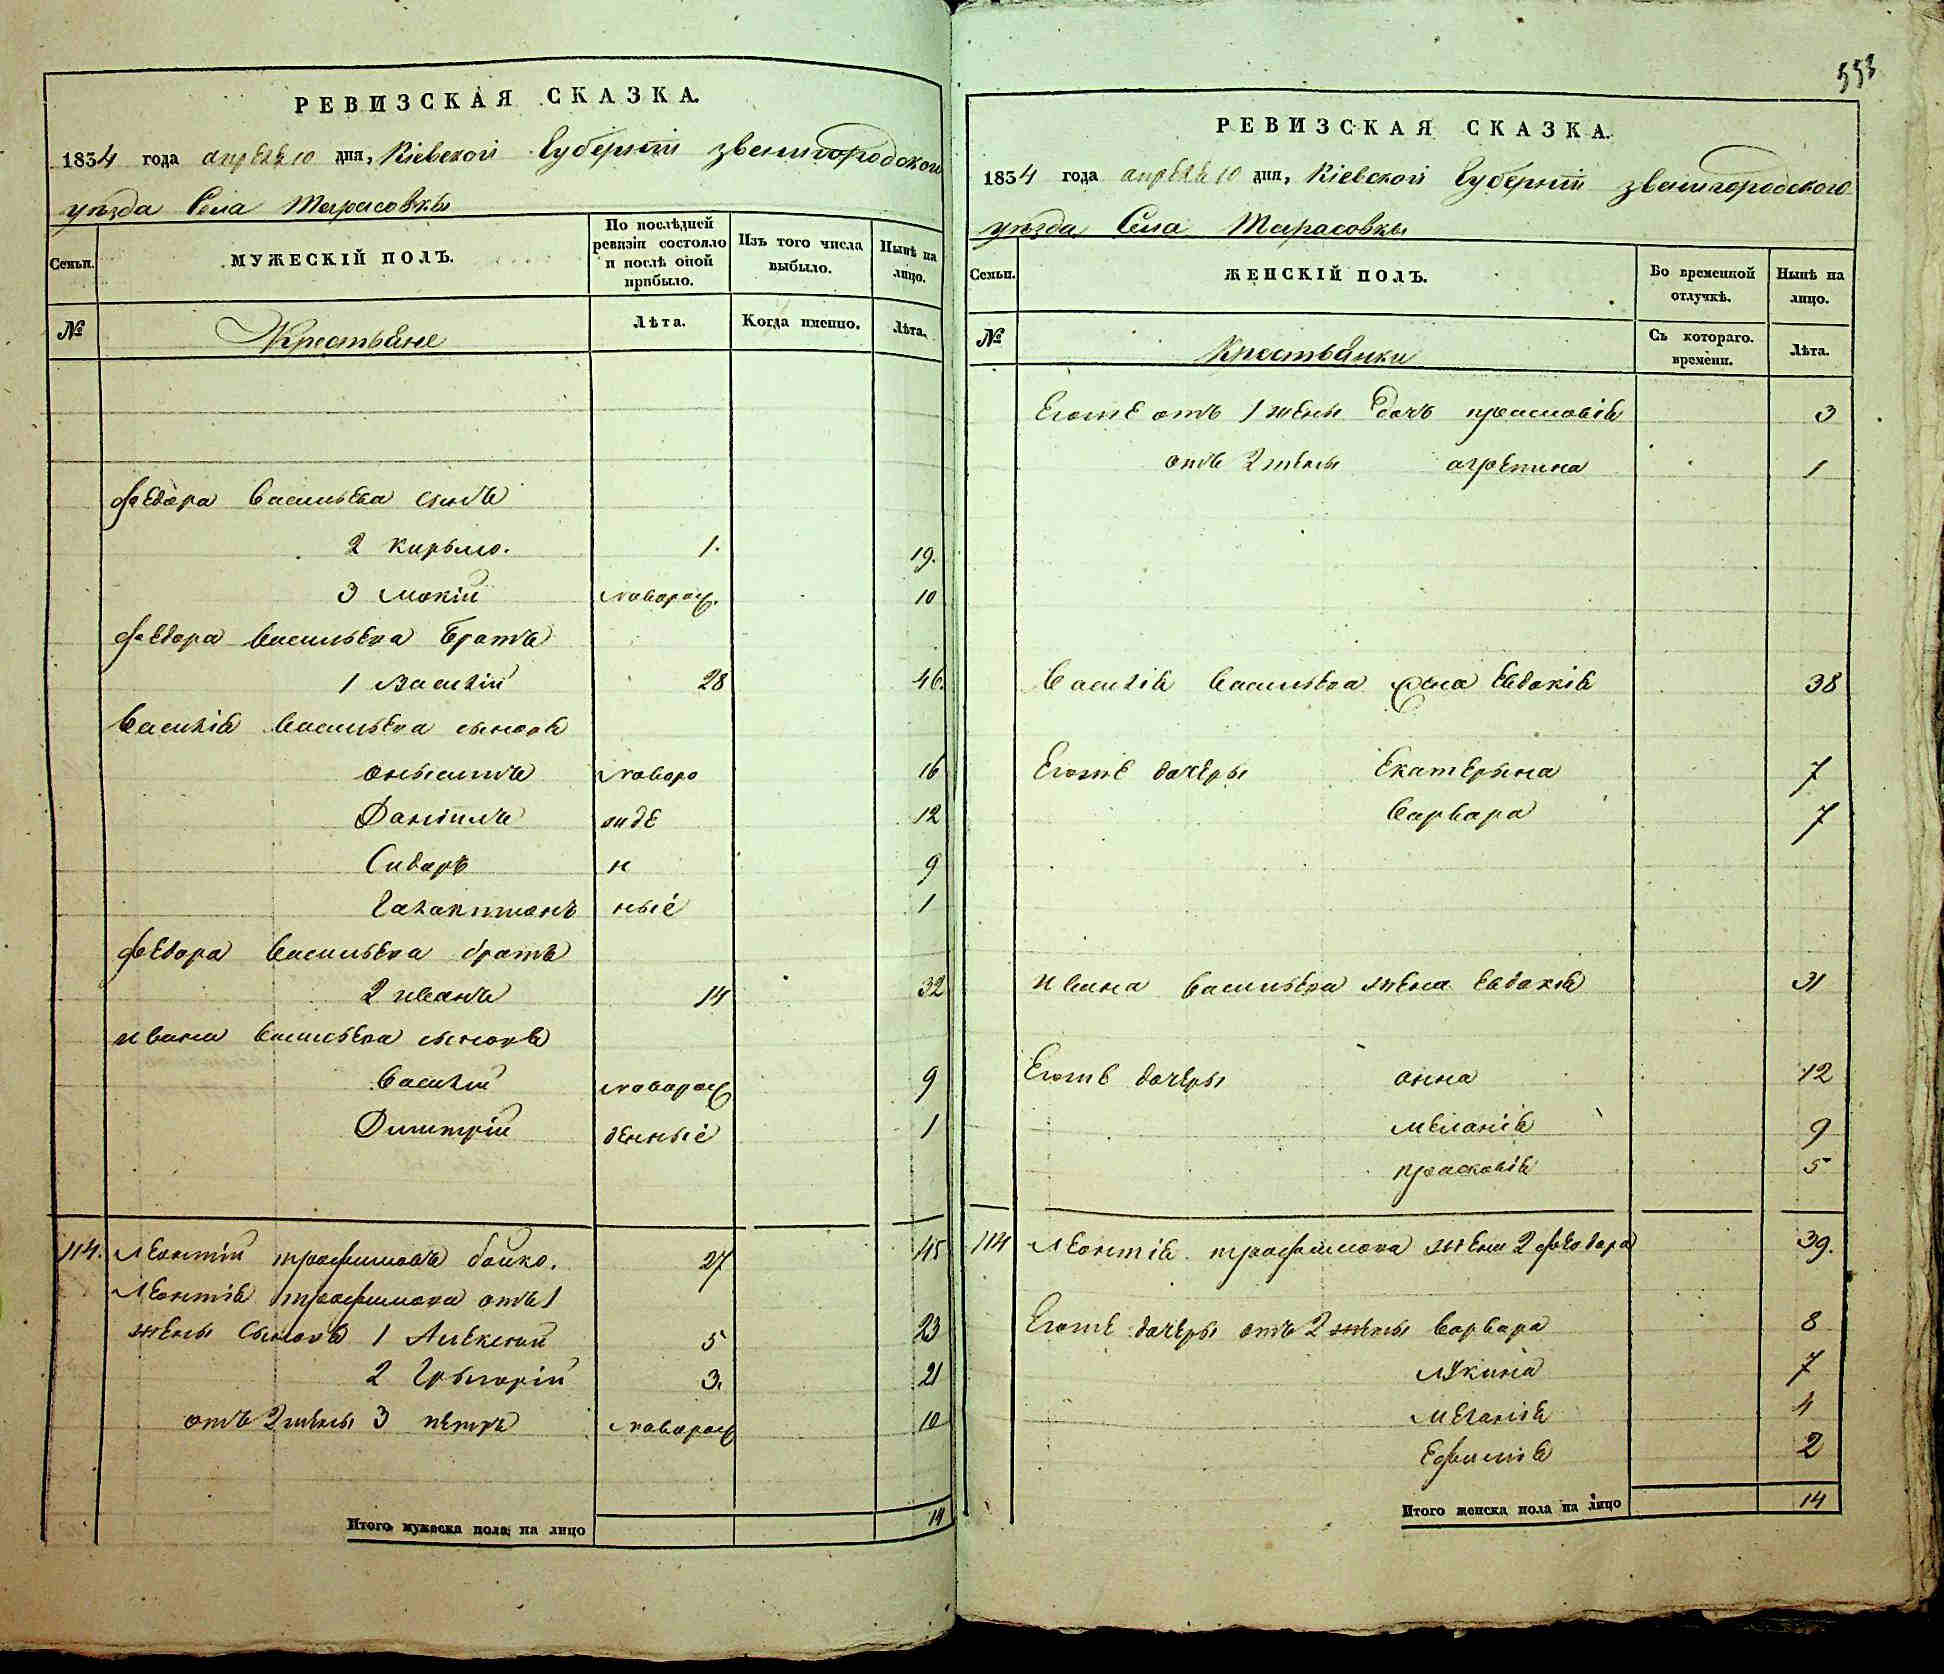 553
РЕВИЗСКАЯ СКАЗКА.
1834 года апреля 10 дня, Кіевской Губерніи звенигородского
уезда Села Тарасовки
Семьи.
МУЖЕСКІЙ ПОЛЪ.
По послѣдней
ревизіи состояло
и послѣ оной
прибыло.
Изъ того числа
выбыло.
Нынѣ на
лицо.
№
Крестьяне
Лѣта.
Когда именно.
Лѣта.
федора Васильева сынъ
2 Кирыло. 1. 19.
3 Мокій новорож. 10
федора Васильева братъ
1 Василій 28 46.
Василія Васильева сыновя
онысимъ новоро 16
Даніилъ жде 12
Сидоръ н 9
Галактионъ ныіе 1
федора Васильева братъ
2 иванъ 14 32
ивана Васильева сыновя
Василій новорож 9
Димитрій денныіе 1
114. Леонтій трофимовъ бойко. 27 45
Леонтія трофимова отъ 1
жены Сыновя 1 Алексій 5 23
2 Грыгорій 3. 21
отъ 2 жены 3 петръ новорож 10
Итого мужеска пола на лицо 14
РЕВИЗСКАЯ СКАЗКА.
1834 года апреля 10 дня, Кіевской Губерніи звенигородского
уезда Села Тарасовки
Семьи.
ЖЕНСКІЙ ПОЛЪ.
Во временной
отлучкѣ.
Нынѣ на
лицо.
№
Крестьянки
Съ котораго.
времени.
Лѣта.
Егоже отъ 1 жены дочь прасковія 3
отъ 2 жены агрепина 1
Василія Васильева жена Евдокія 38
Егоже дочеры Екатерына 7
Варвара 7
ивана Васильева жена Евдокія 31
Егоже дочеры анна 12
меланія 9
прасковія 5
114 Леонтія трофимова жена 2 феодора 39.
Егоже дочеры отъ 2 жены Варвара 8
Лукина 7
Меланія 4
Ефимія 2
Итого женска пола на лицо 14